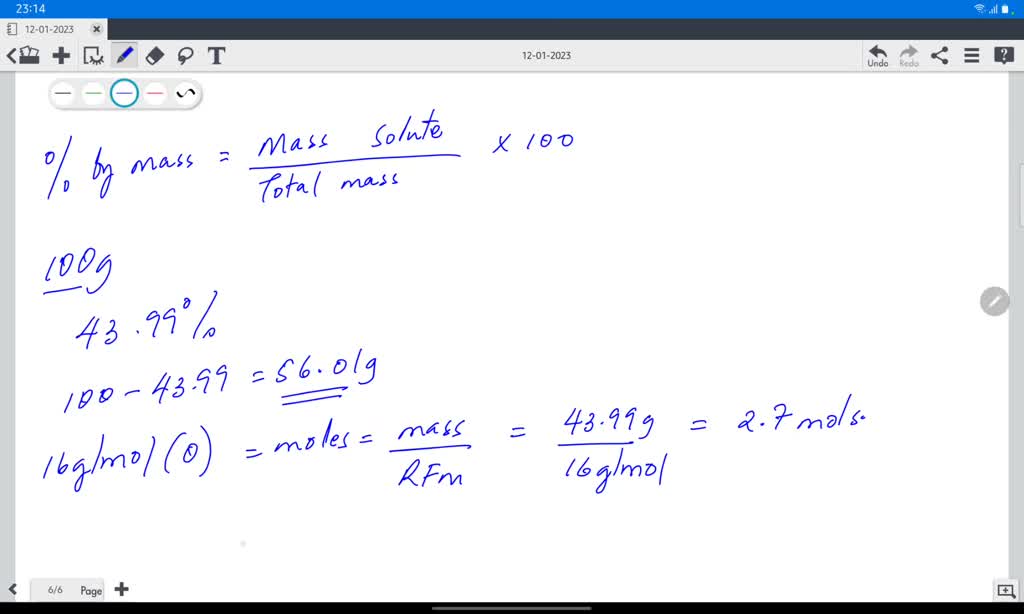 23:14
12-01-2023
T
12-01-2023
Undo
Redo
% by mass = Mass Solute / Total mass × 100
100g
43.99%
100 - 43.99 = 56.01g
16g/mol (O) = moles = mass / RFm = 43.99g / 16g/mol = 2.7 mols.
6/6 Page